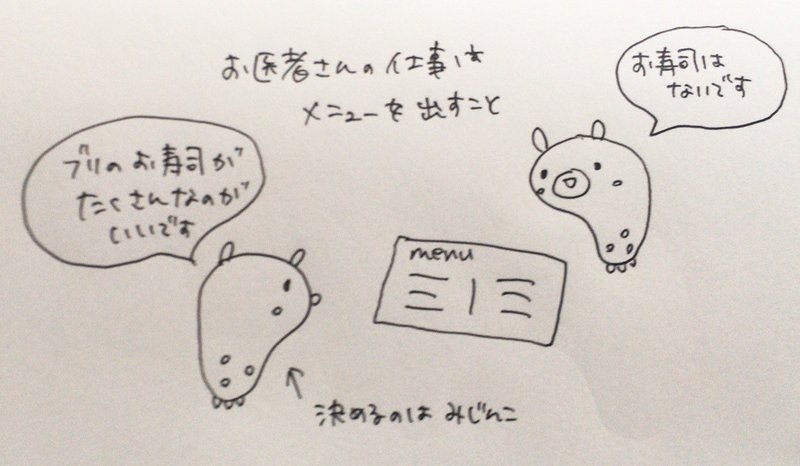 お医者さんの仕事は
メニューを出すこと
お寿司は
ないです
ブリのお寿司が
たくさんなのが
いいです
menu
決めるのはみじんこ